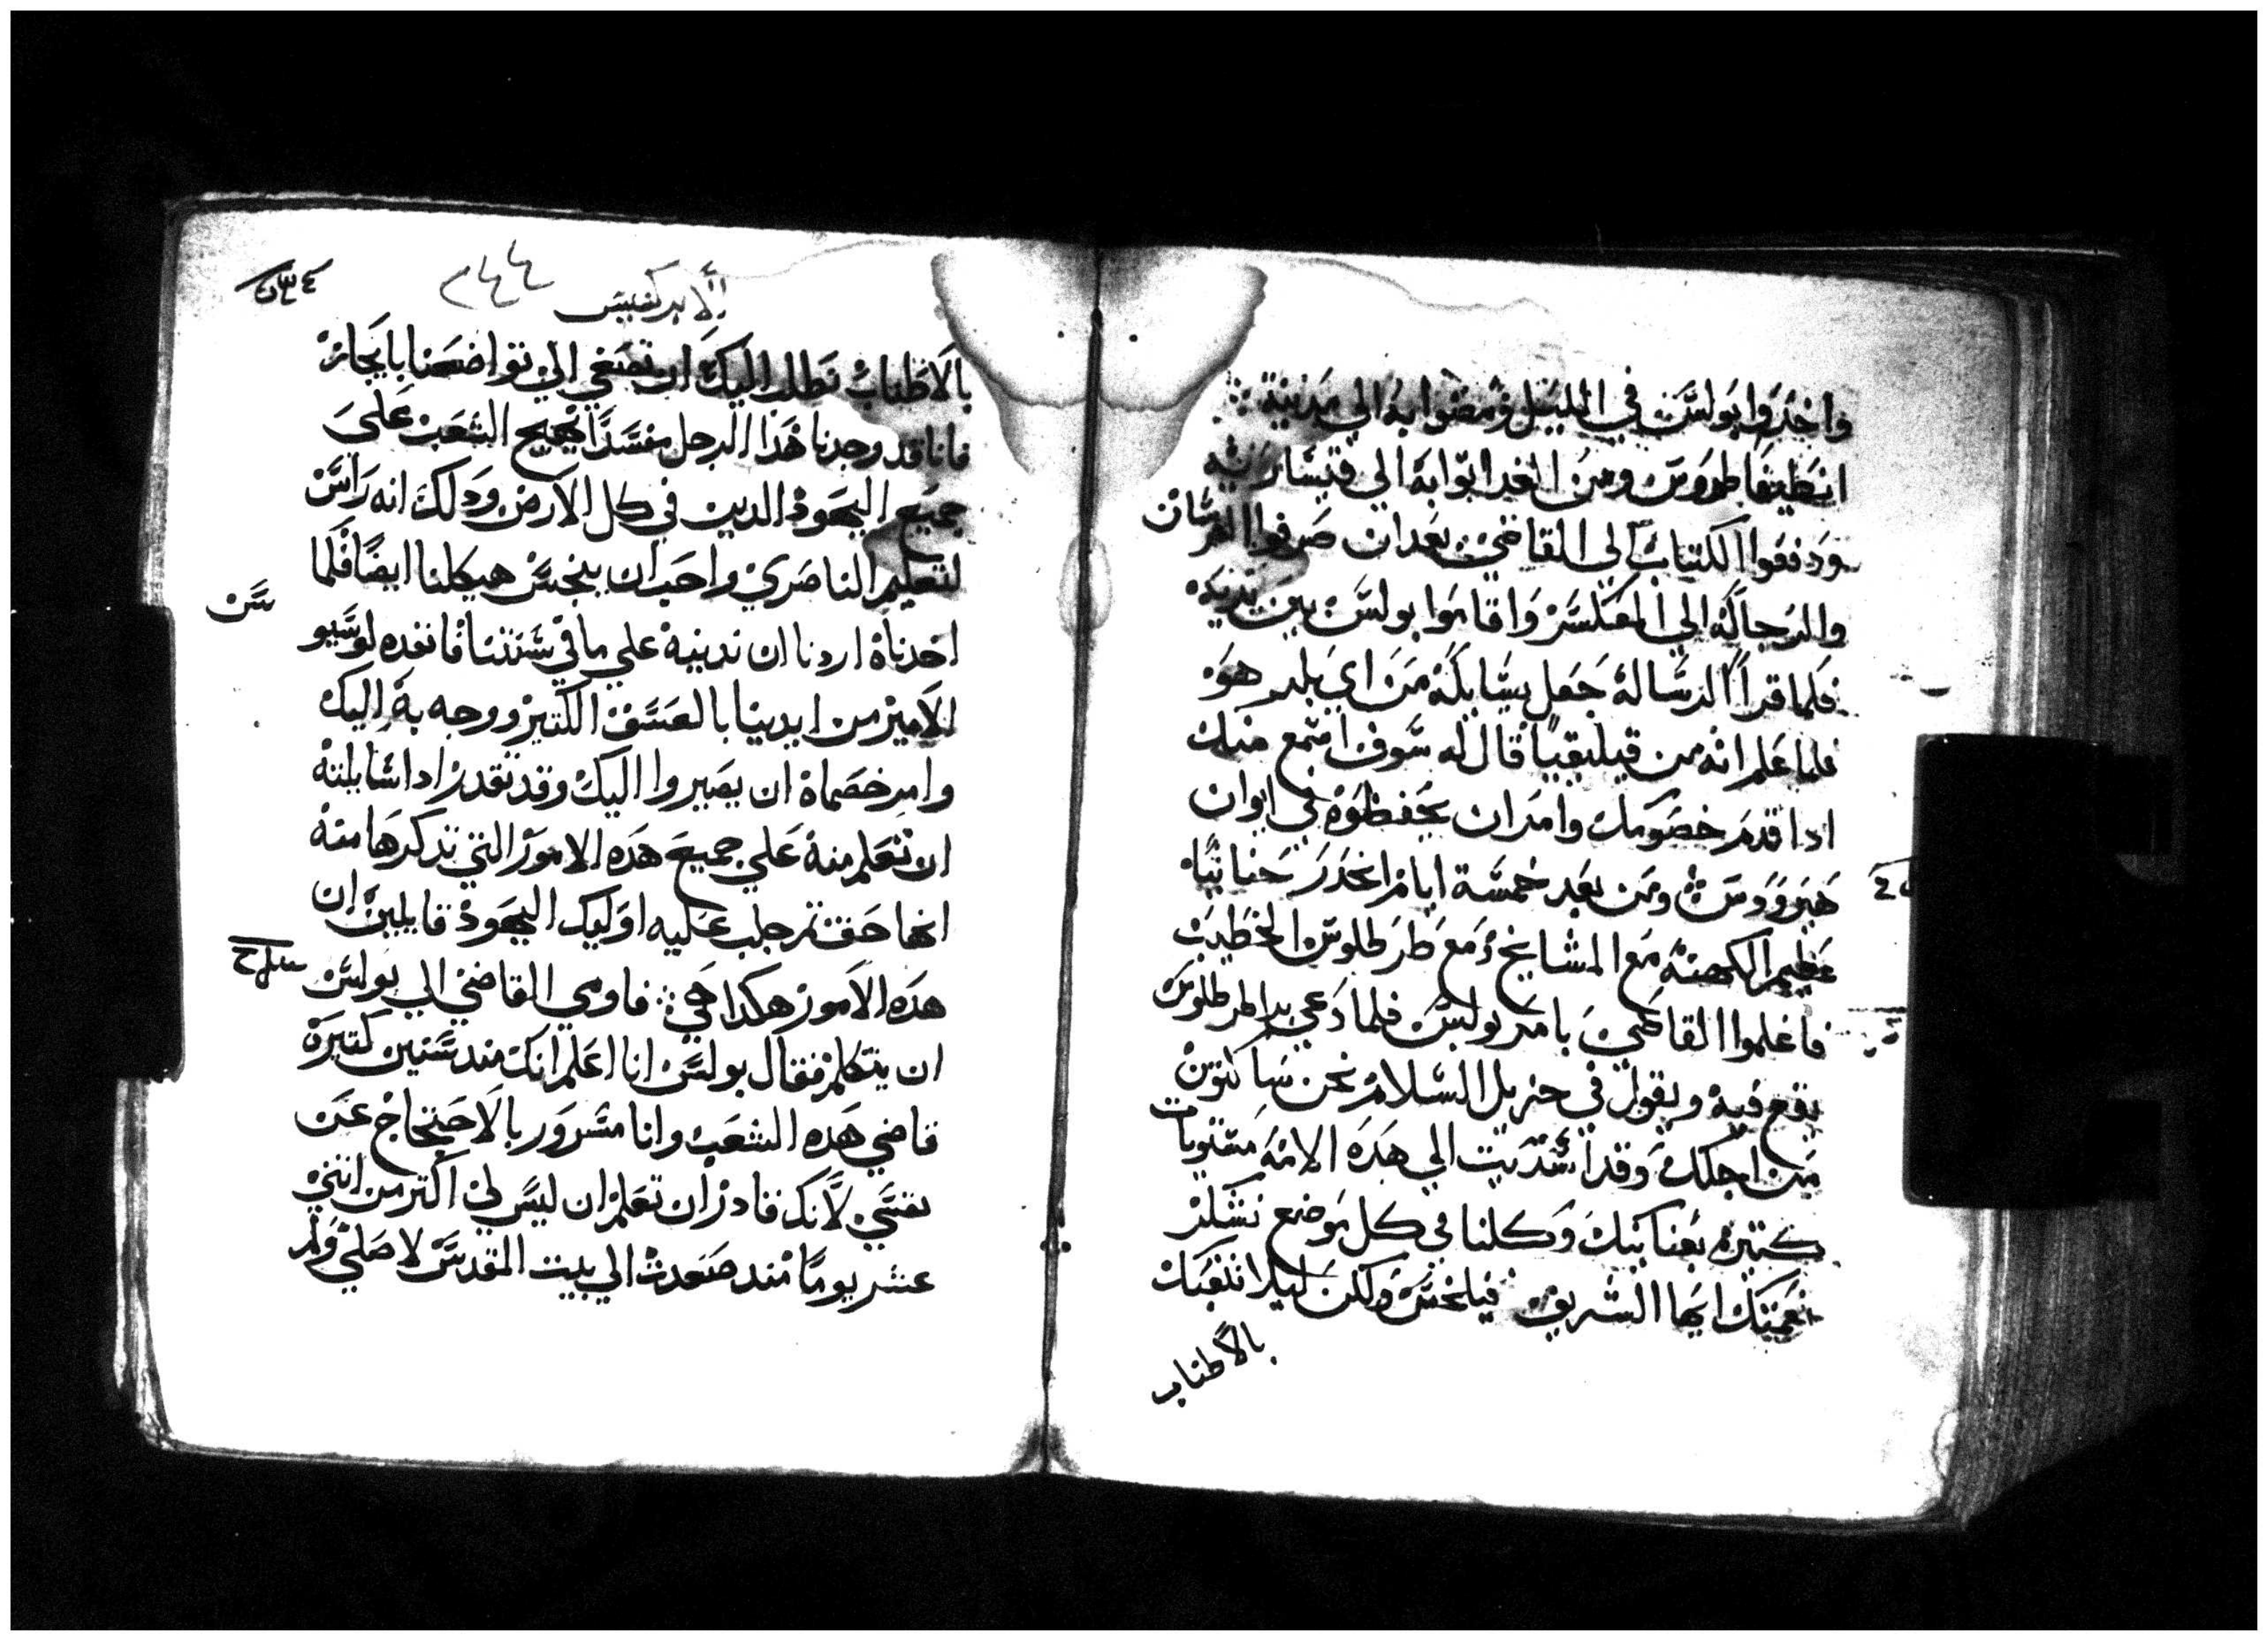 واخدوا بولس في الليل ومضوا به الي مدينة
انطيفاطروس ومن الغد اتوا به الي قيسارية
ودفعوا الكتاب الي القاضي بعد ان صرفوا الفرسان
والرجالة الي المعسكر واقاموا بولس بين يديه
فلما قرا الرسالة جعل يسايله من اي بلد هو
فلما علم انه من قيليقيا قال له سوف اسمع منك
ادا قدم خصومك وامر ان يحفظوه في ايوان
هيرودس ومن بعد خمسة ايام انحدر حنانيا
عظيم الكهنة مع المشايخ ومع طرطلوس الخطيب
فاعلموا القاضي بامر بولس فلما دعي بدا طرطلوس
يقع فيه ويقول في جزيل السلام نحن ساكنون
من اجلك وقد اسديت الي هده الامة مستويات
كتيرة بعنايتك وكلنا في كل موضع نشكر
نعمتك ايها الشريف فيلخس ولكن ليلا نتعبك
بالاطناب
الابركسيس
٢٤٤
بالاطناب نطلب اليك ان تصغي الي تواضعنا بايجاز
فانا قد وجدنا هدا الرجل مفسدا يهيج الشعب علي
جميع اليهود الدين في كل الارض ودلك انه راس
لتعليم الناصري واحب ان ينجس هيكلنا ايضا فلما
اخدناه اردنا ان ندينه علي ما في سنتنا فانقده لوسيو
الامير من ايدينا بالعسف الكتير ووجه به اليك
وامر خصماه ان يصيروا اليك وقد تقدر ادا سايلته
ان تعلم منه علي جميع هده الامور التي ندكرها منه
انها حق تم جلب عليه اوليك اليهود قايلين ان
هده الامور هكدا هي فاومي القاضي الي بولس
ان يتكلم فقال بولس انا اعلم انك مند سنين كتيرة
قاضي هده الشعب وانا مسرور بالاحتجاج عن
نفسي لانك قادر ان تعلم ان ليس لي اكتر من اتني
عشر يوما مند صعدت الي بيت المقدس لاصلي ولم